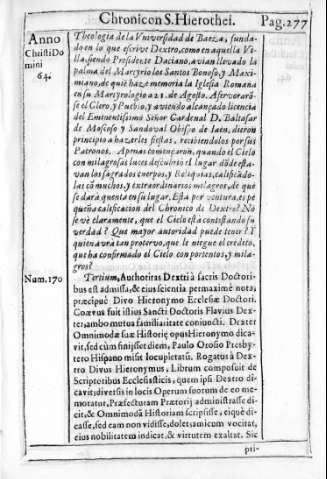 Chronicon S. Hierothei.
Pag. 277
Anno
Christi Do
mini
64.
Theologia de la Vniversidad de Baeza, funda-
do en lo que escrive Dextro, como en aquella Vi-
lla, siendo Presidente Daciano, avian llevado la
palma del Martyrio los Santos Bonoso, y Maxi-
miano, de què haze memoria la Iglesia Romana
en su Martyrologio a 21. de Agosto. Afervorarõ-
se el Clero, y Pueblo, y aviendo alcançado licencia
del Eminentissimo Señor Cardenal D. Baltasar
de Moscoso y Sandoval Obispo de Iaen, dieron
principio a hazerles fiestas, recibiendolos por sus
Patronos. Apenas començaron, quando el Cielo
con milagrosas luces descubriò el lugar dõde esta-
van los sagrados cuerpos, y Reliquias, calificãdo-
las cõ muchos, y extraordinarios milagros, de que
se darà quenta en su lugar. Esta por ventura, es pe
queña calificacion del Chronico de Dextro? No
se vè claramente, que el Cielo està contestando su
verdad? Que mayor autoridad puede tener? Y
quien avrà tan protervo, que le niegue el credito,
que ha confirmado el Cielo con portentos, y mila-
gros?
Num. 170
Tertium, Authoritas Dextri à sacris Doctori-
bus est admissa, & eius scientia permaximè nota,
præcipuè Divo Hieronymo Ecclesiæ Doctori.
Coævus fuit istius Sancti Doctoris Flavius Dex-
ter, ambo mutua familiaritate coniuncti. Dexter
Omnimodæ suæ Historiæ opus Hieronymo dica-
vit, sed cùm finijsset diem, Paulo Orosio Presby-
tero Hispano misit locupletatũ. Rogatus à Dex-
tro Divus Hieronymus, Librum composuit de
Scriptoribus Ecclesiasticis, quem ipsi Dextro di-
cavit; diversis in locis Operum suorum de eo me-
moratur, Præfecturam Prætorij administrasse di-
cit, & Omnimodã Historiam scripsisse, eique di-
casse, sed eam non vidisse, dolet; amicum vocitat,
eius nobilitatem indicat, & virtutem exaltat. Sic
pri-